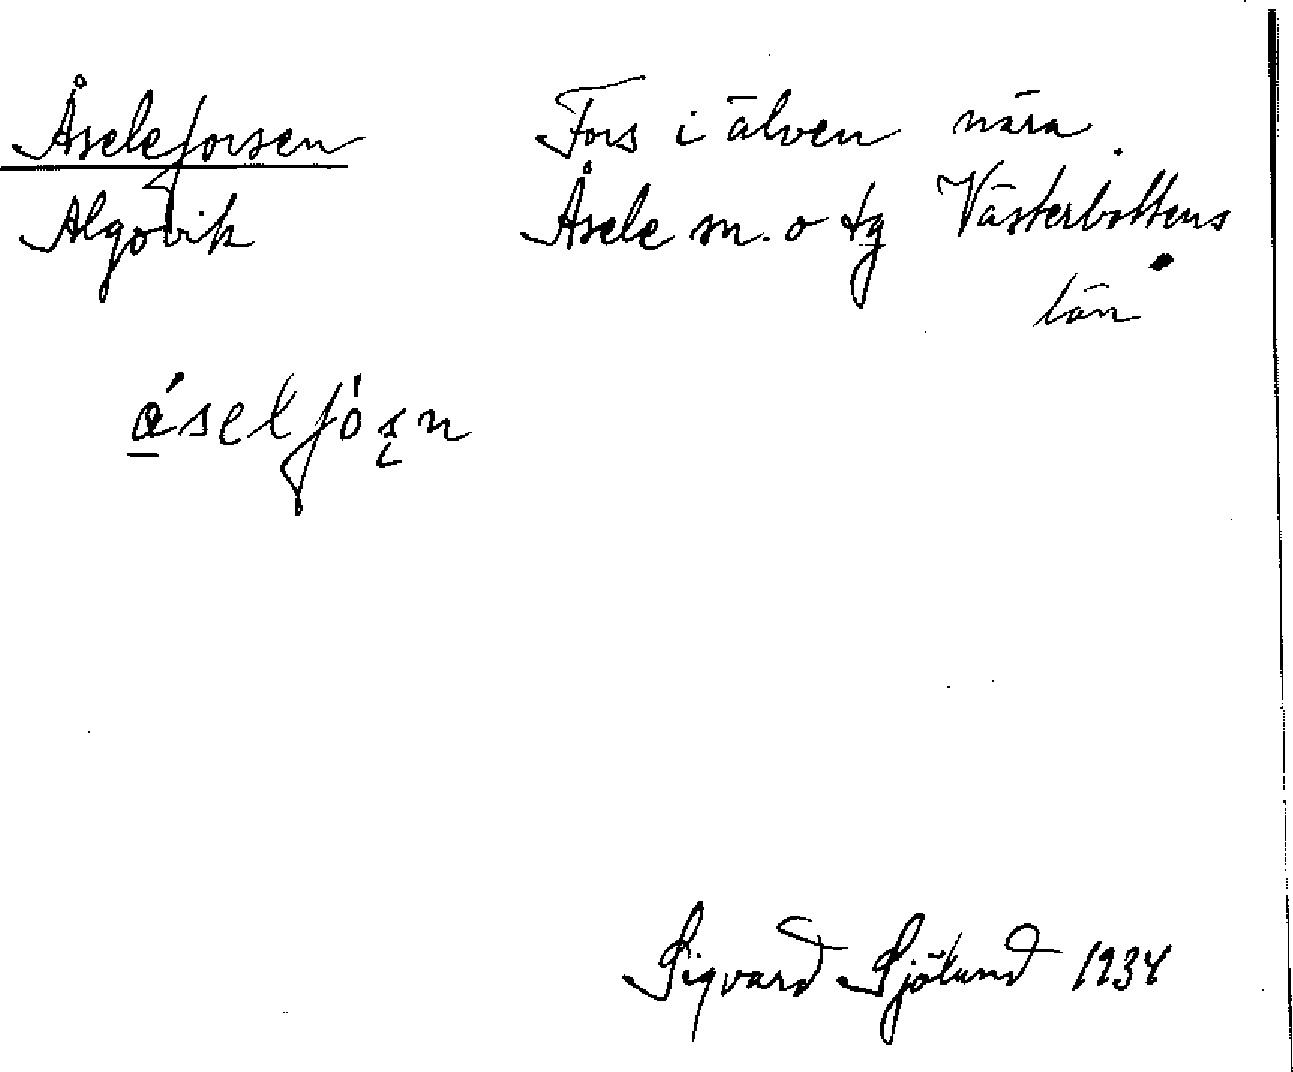 Åseleforsen
Algovik
Fors i älven nära
Åsele sn. o tg Västerbottens
län
ǻselfórn
Sigvard Sjölund 1934